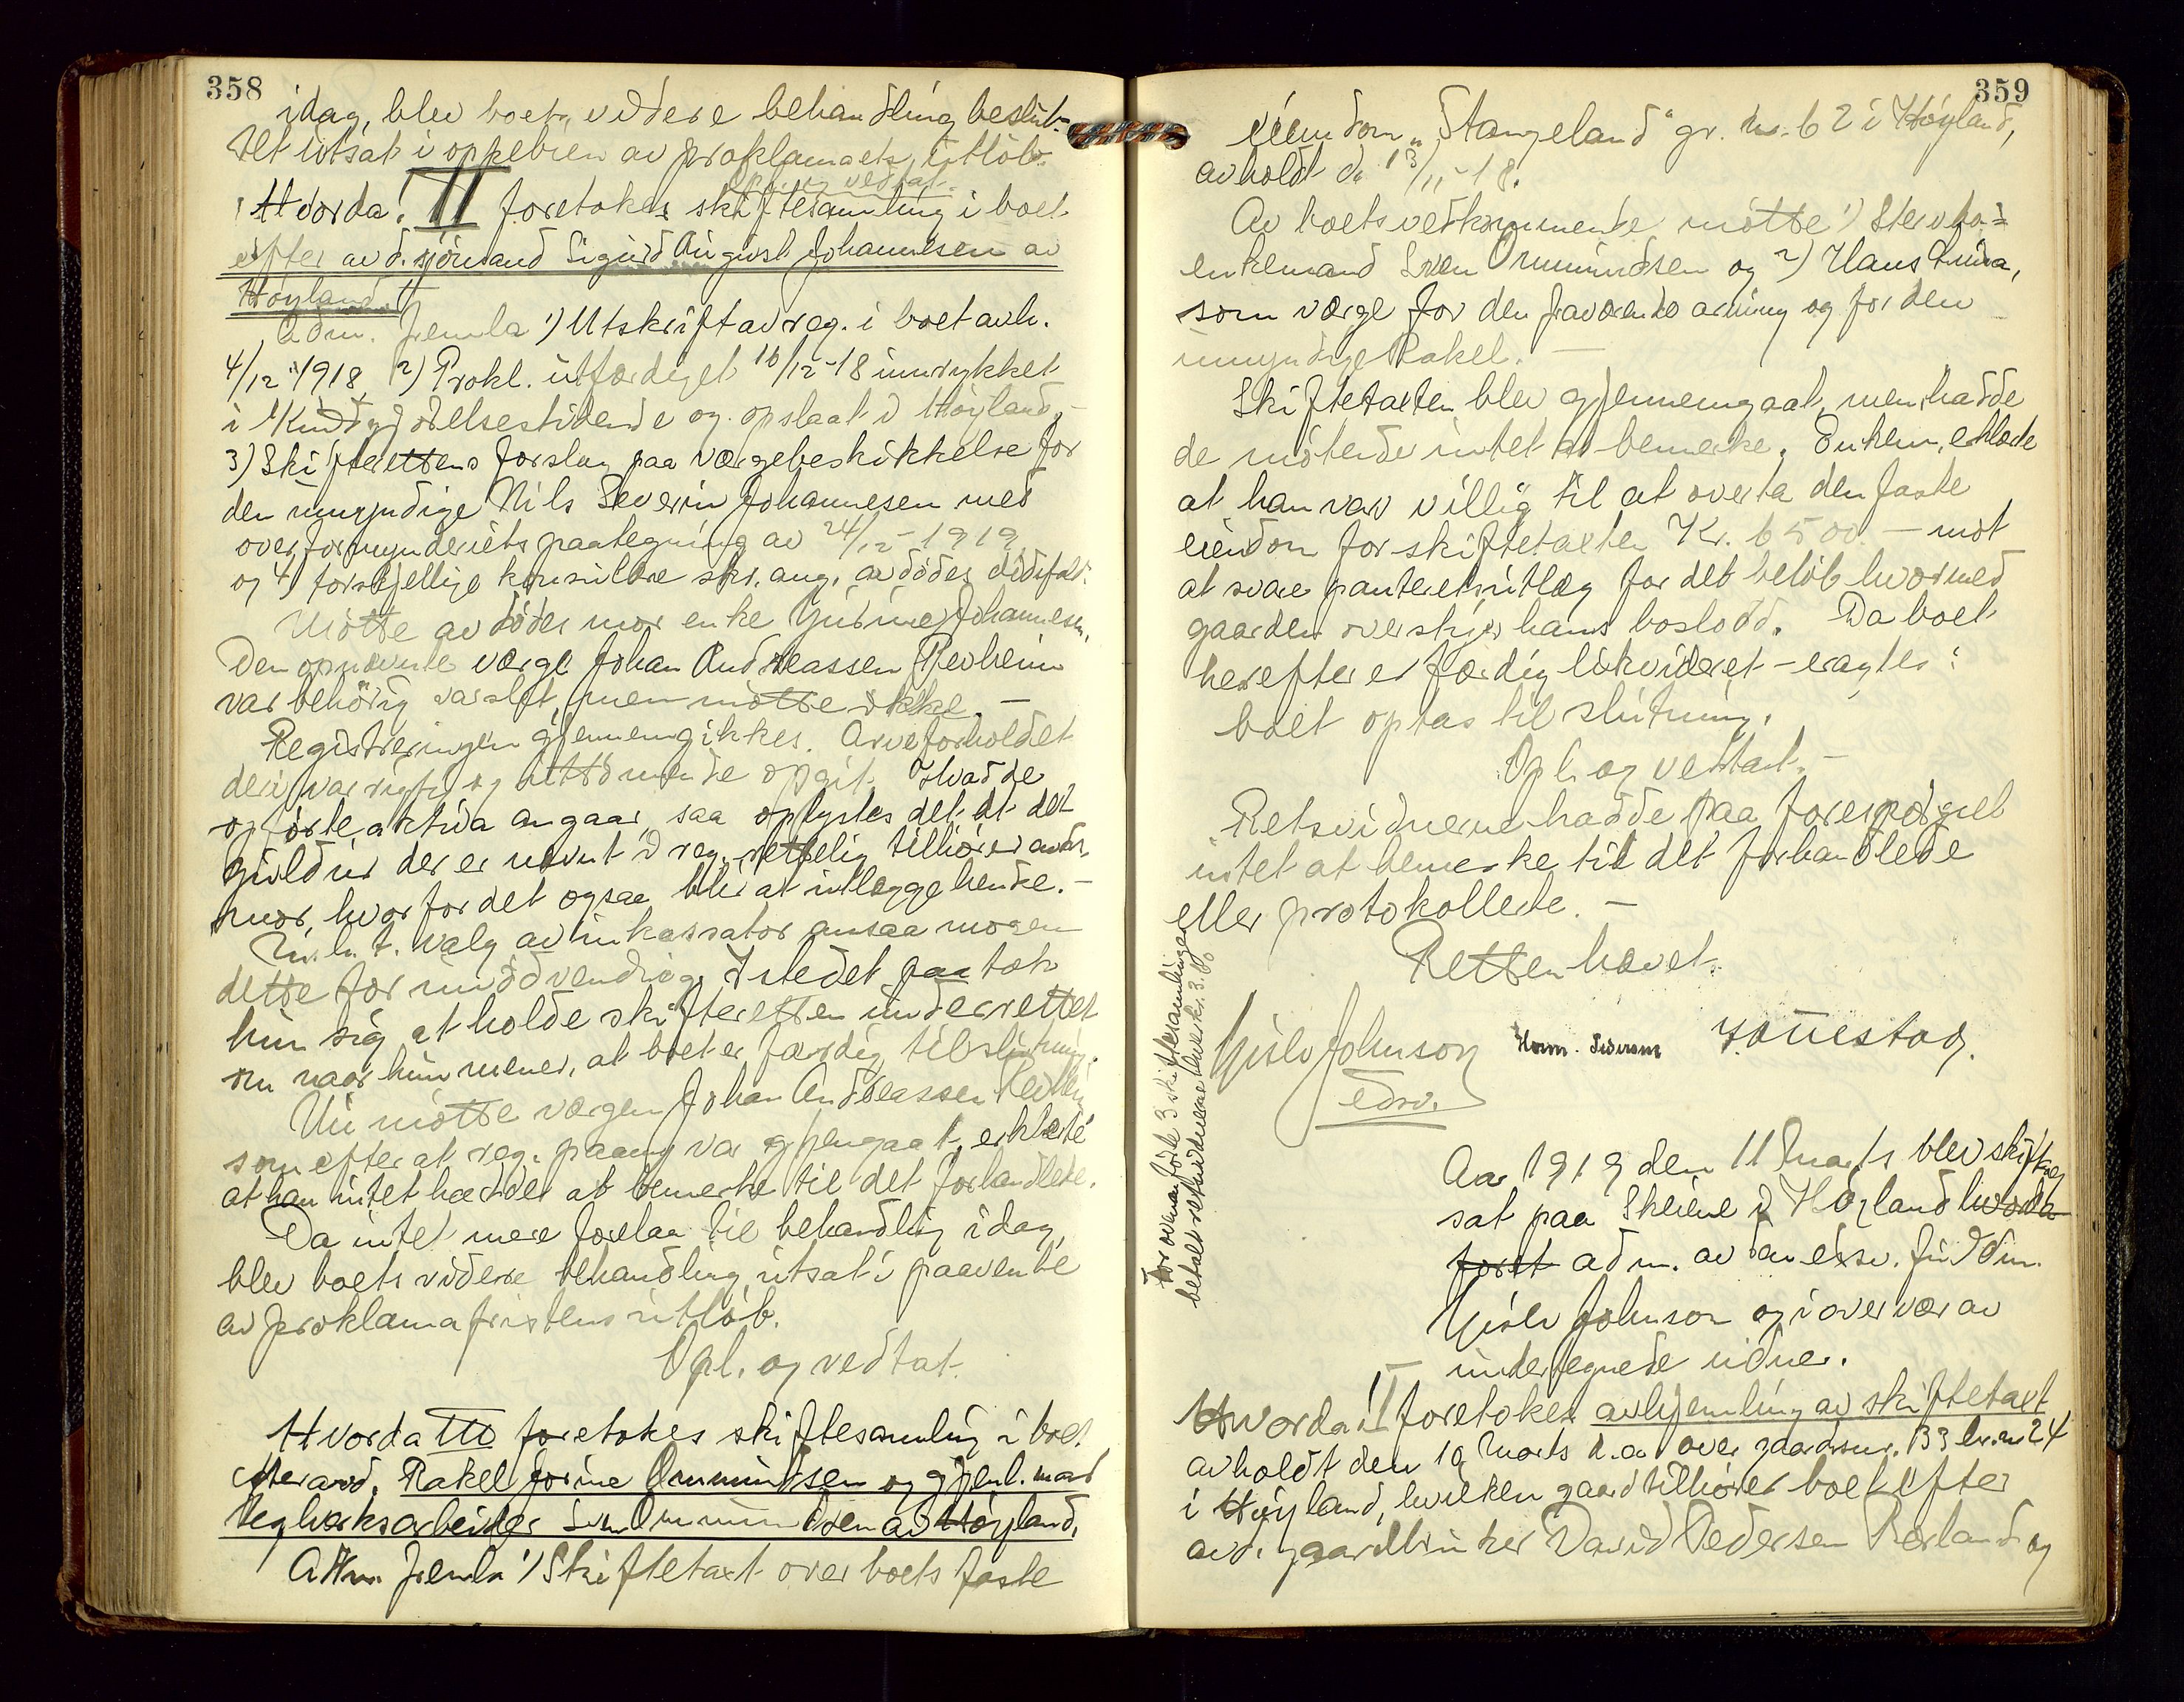 358
idag, blev boets videre behandling beslut-
tet utsat i oppebien av proklamaets utløb.
Opl. og vedtat.
Hvorda! II foretokes skiftesamling i boet
efter avd. sjömand Sigurd August Johannesen av
Høyland.
Adm. fremla 1) Utskrift av reg. i boet avh.
4/12 1918, 2) Prokl. utfærdiget 16/12-18 innrykket
i Kundgjørelsestidende og opslaat i Høyland,-
3) Skifterettens forslag paa værgebeskikkelse for
den umyndige Nils Severin Johannesen med
overformynderiets paategning av 24/12-1919
og 4) forskjellige konsulære skr. ang. avdødes dødsfald.
Møtte avdødes mor enke Gurine Johannesen.
Den opnævnte værge Johan Andreassen Revheim
var behørig varslet, men møtte ikke. -
Registreringen gjennemgikkes. Arveforholdet
deri var rigtig og uttømmende opgit. Hvad de
opførte aktiva angaar, saa oplystes det at det
guldur der er nævnt i reg. rettelig tilhører avds.
mor, hvorfor det ogsaa blir at utlægge henne. -
M.h.t. valg av inkassator ansaa moren
dette for unødvendig. Istedet paatok
hun sig at holde skifteretten underrettet
om naar hun mener, at boet er færdig til slutning.
Nu møtte værgen Johan Andreassen Revheim
som efter at reg. paany var gjengaat, erklærte
at han intet hadde at bemerke til det forhandlede.
Da intet mere forelaa til behandling idag,
blev boets videre behandling utsat i paavente
av proklamafristens utløb.
Opl. og vedtat.
Hvorda III foretokes skiftesamling i boet
efter avd. Rakel Jorine Ommundsen og gjenl. mand
teglverksarbeider Sven Ommundsen av Høyland.
Adm. fremla 1) Skiftetaxt over boets faste
359
eiendom "Stangeland" gr. nr. 62 i Høyland,
avholdt d. 13/11-18.
Av boets vedkommende møtte 1) Stervbo-
enkemand Sven Ommundsen og 2) Hans Lura,
som værge for den fraværende arving og for den
umyndige Rakel. -
Skiftetaxten blev gjennemgaat, men hadde
de møtende intet at bemerke. Enkem. erklærte
at han var villig til at overta den faste
eiendom for skiftetaxten Kr. 6500 - mot
at svare panteretsutlæg for det beløb hvormed
gaarden overskyter hans boslodd. Da boet
herefter er færdig likvideret - eragtes:
boet optas til slutning.
Opl. og vedtat. -
Retsvidnerne hadde paa forespørgsel
intet at bemerke til det forhandlede
eller protokollerte. -
Retten hævet.
Gisle Johnson
edsv.
For ovenanførte 3 skiftesamlinger
betalt retsvidnerne hver kr. 3.00
Aar 1919 den 11 marts blev skifteret
sat paa Skeiene i Høyland hvorda
foret adm. av den edsv. fuldm.
Gisle Johnson og i overvær av
undertegnede vidner.
Hvorda! I foretokes avhjemling av skiftetaxt
avholdt den 10 marts d.a. over gaardsnr. 33 br.nr. 24
i Høyland, hvilken gaard tilhører boet efter
avd. gaardbruker David Pedersen og